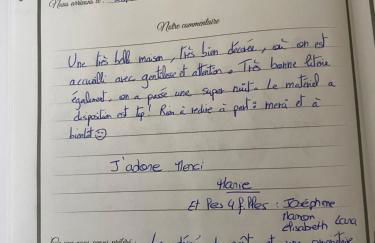 Nous arrivons
Notre commentaire
Une très bell maison, très bien décorée, où on est
accueilli avec gentilesse et attention. Très bonne literie
également, on a passé une super nuit. Le matériel a
disposition est top! Rien à redire à part : merci et à
bientôt ☺
J'adore Merci
Marie
Et les 4 filles : Joséphine
Manon Lara
Elisabeth